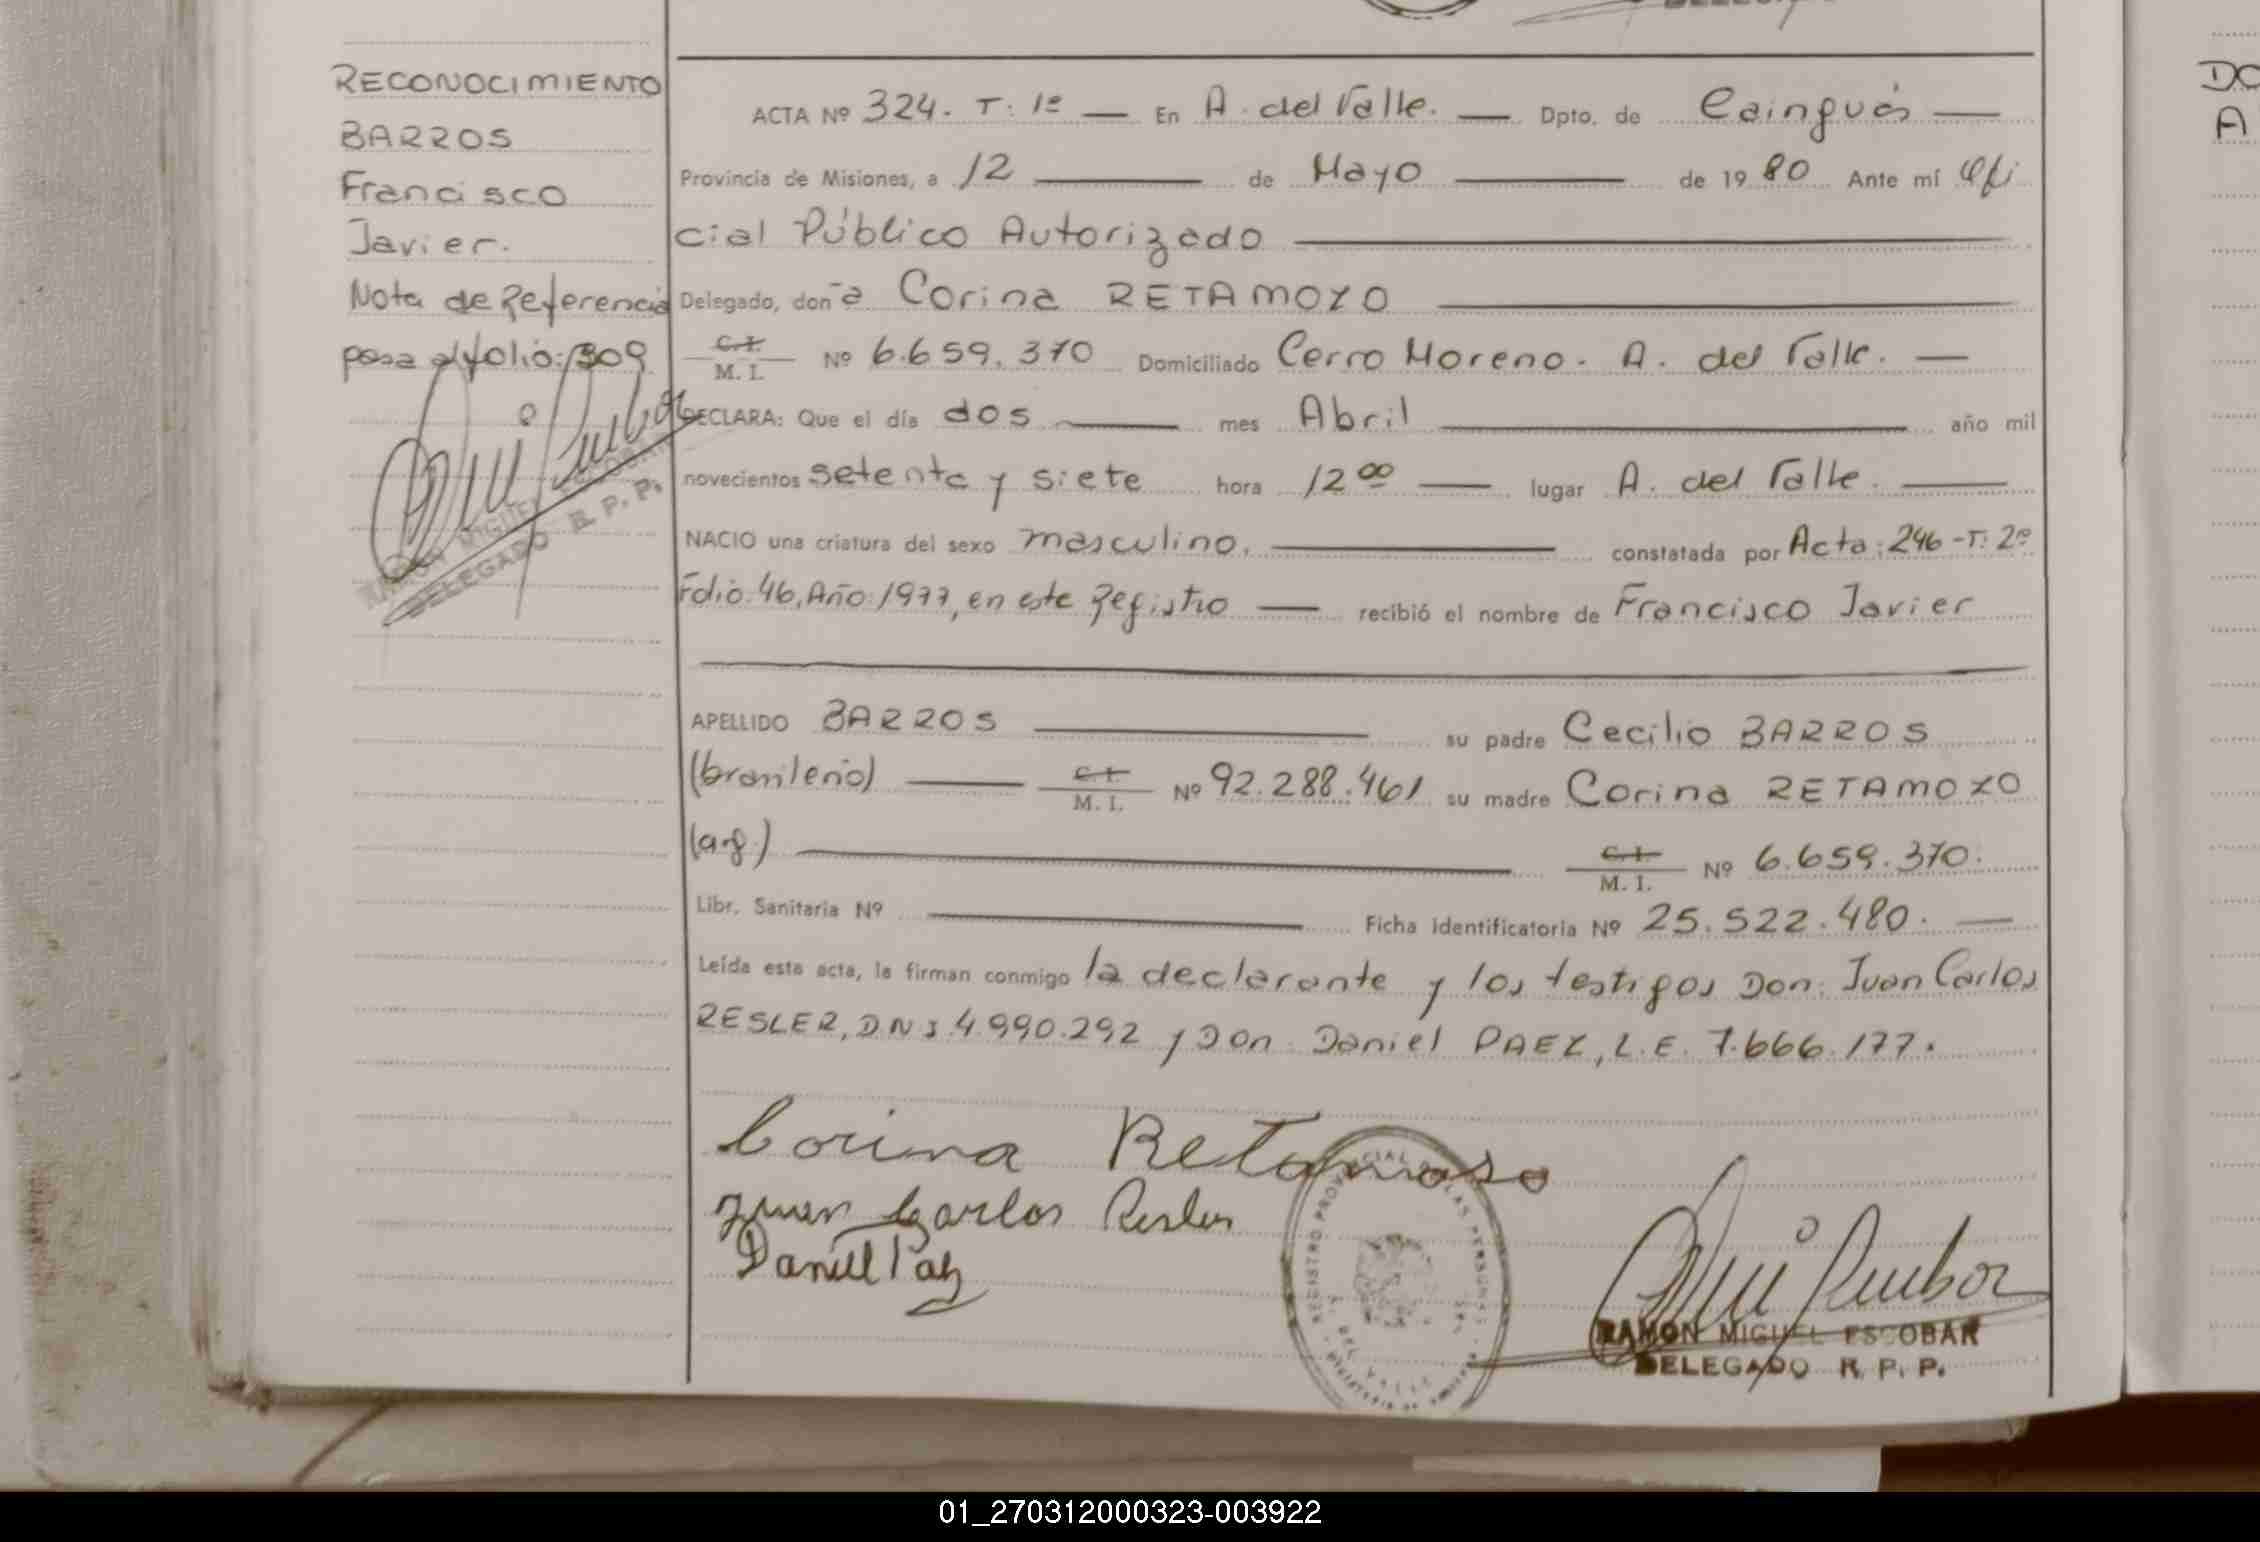 RECONOCIMIENTO
BARROS
Francisco
Javier.
Nota de Referencia
pasa al folio: 309
RAMON MIGUEL ESCOBAR
DELEGADO R. P. P.
ACTA Nº 324. T: 1º — En A. del Valle. — Dpto. de Cainguás —
Provincia de Misiones, a 12 — de Mayo — de 19 80 Ante mí Ofi
cial Público Autorizado
Delegado, don ª Corina RETAMOZO
C.I. M. I. Nº 6.659.370 Domiciliado Cerro Moreno. A. del Valle. —
DECLARA: Que el día dos — mes Abril — año mil
novecientos setenta y siete hora 12 00 — lugar A. del Valle. —
NACIO una criatura del sexo masculino, — constatada por Acta: 246 - T: 2º
Folio: 46, Año: 1977, en este Registro — recibió el nombre de Francisco Javier
APELLIDO BARROS — su padre Cecilio BARROS
(brasileño) — C.I. M. I. Nº 92.288.461 su madre Corina RETAMOZO
(arg.) — C.I. M. I. Nº 6.659.370.
Libr. Sanitaria Nº — Ficha Identificatoria Nº 25.522.480. —
Leída esta acta, la firman conmigo la declarante y los testigos Don: Juan Carlos
RESLER, D.N.I. 4.990.292 y Don Daniel PAEZ, L.E. 7.666.177.
Corina Retamoso
Juan Carlos Resler
Daniel Paez
REGISTRO PROVINCIAL DE LAS PERSONAS
A. DEL VALLE
RAMON MIGUEL ESCOBAR
DELEGADO R. P. P.
DO
A
01_270312000323-003922